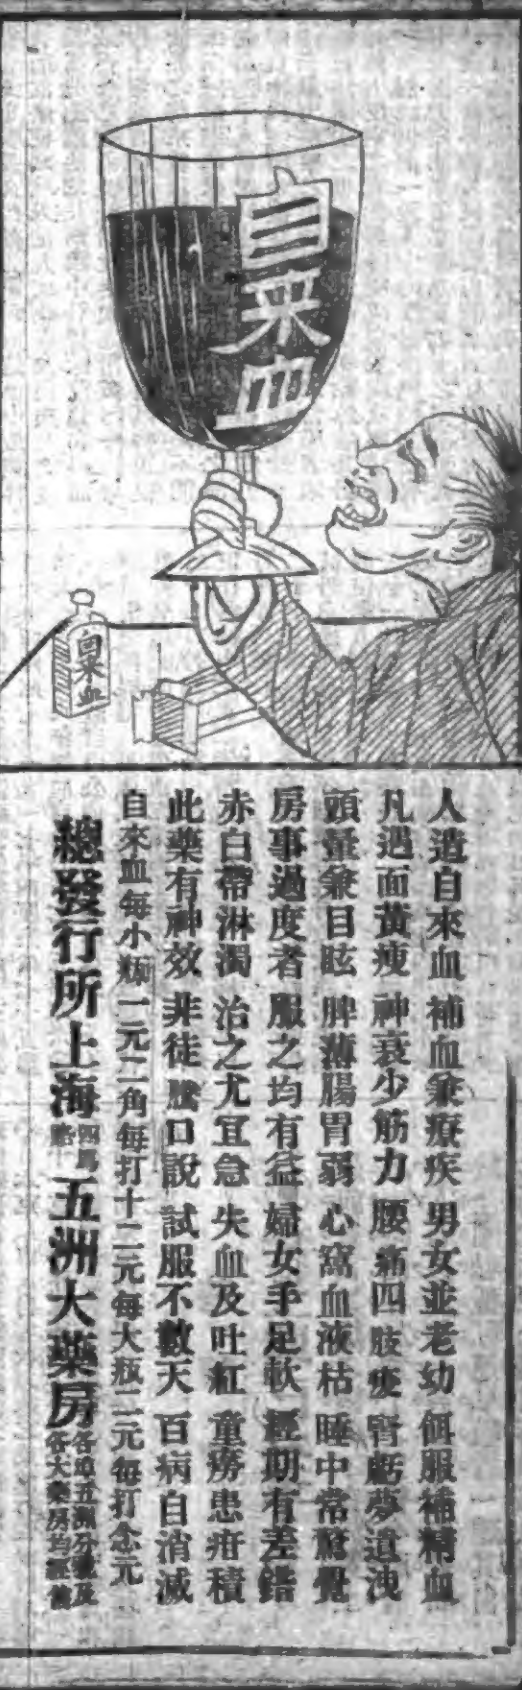 自來血
自來血
人造自來血 補血兼療疾 男女並老幼 餌服補精血
凡遇面黃瘦 神衰少筋力 腰痛四肢痠 腎虧夢遺洩
頭暈兼目眩 脾薄腸胃弱 心窩血液枯 睡中常驚覺
房事過度者 服之均有益 婦女手足軟 經期有差錯
赤白帶淋濁 治之尤宜急 失血及吐紅 童癆患疳積
此藥有神效 非徒騰口說 試服不數天 百病自消滅
自來血每小瓶一元二角每打十二元每大瓶二元每打念元
總發行所上海四馬路五洲大藥房各埠五洲分號及各大藥房均經售